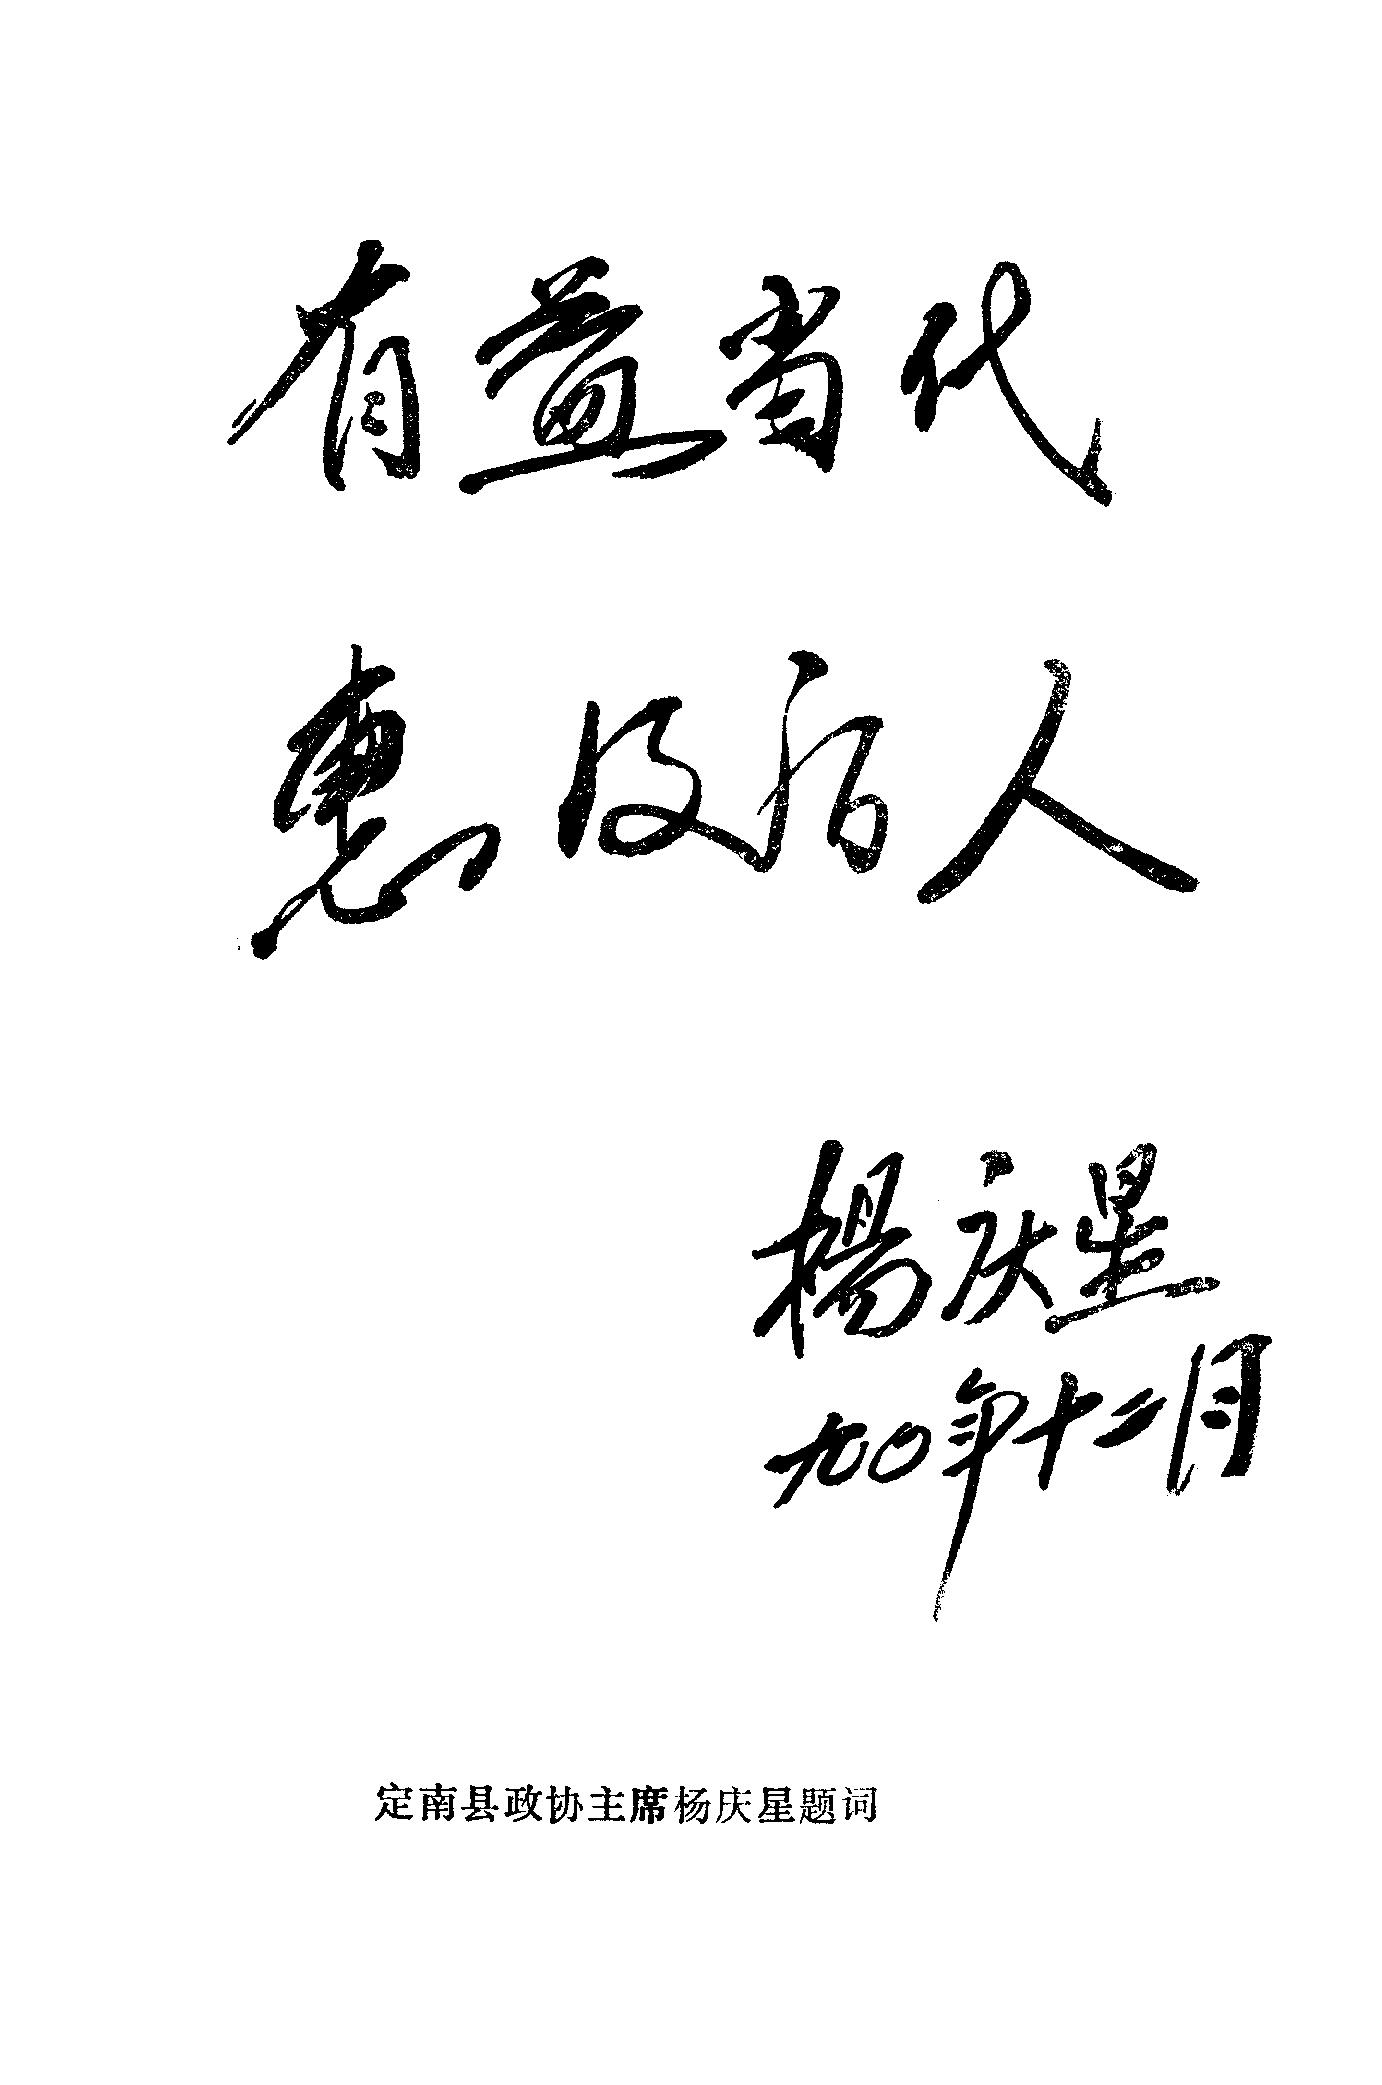 有益当代
惠及后人
楊庆星
九〇年十二月
定南县政协主席杨庆星题词